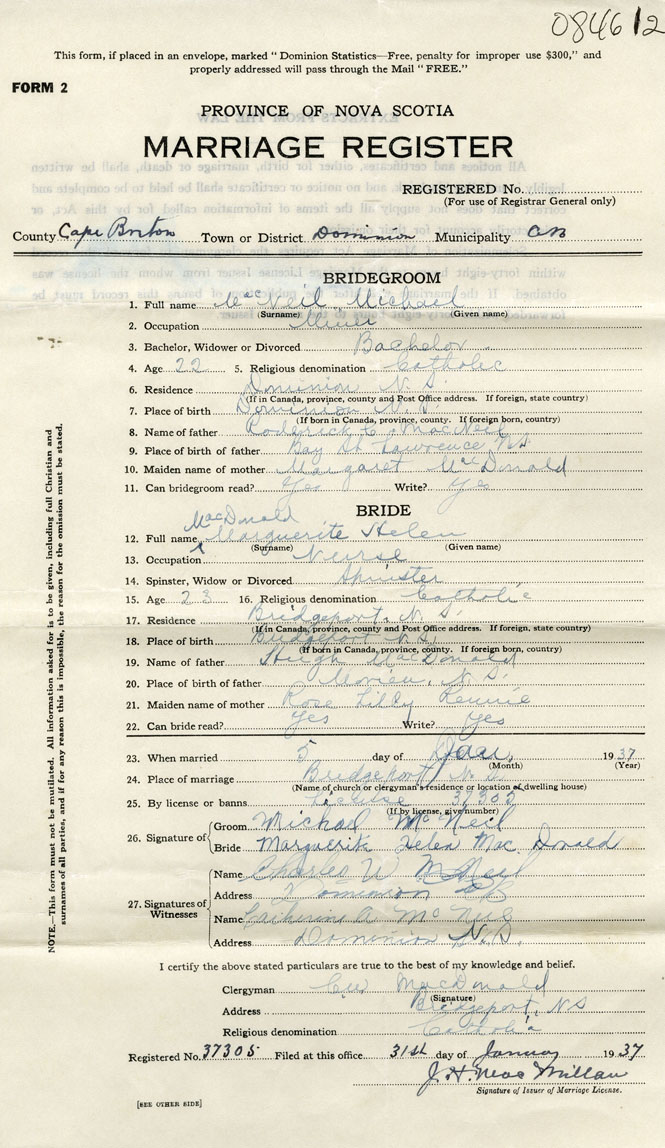 084612
This form, if placed in an envelope, marked "Dominion Statistics—Free, penalty for improper use $300," and
properly addressed will pass through the Mail "FREE."
FORM 2
PROVINCE OF NOVA SCOTIA
MARRIAGE REGISTER
REGISTERED No.
(For use of Registrar General only)
County Cape Breton Town or District Dominion Municipality CB
BRIDEGROOM
1. Full name MacNeil Michael
(Surname) (Given name)
2. Occupation Miner
3. Bachelor, Widower or Divorced Bachelor
4. Age 22 5. Religious denomination Catholic
6. Residence Dominion N.S.
(If in Canada, province, county and Post Office address. If foreign, state country)
7. Place of birth Dominion N.S.
(If born in Canada, province, county. If foreign born, country)
8. Name of father Roderick C. MacNeil
9. Place of birth of father Bay St Lawrence NS
10. Maiden name of mother Margaret MacDonald
11. Can bridegroom read? Yes Write? Yes
BRIDE
MacDonald
12. Full name Marguerite Helen
(Surname) (Given name)
13. Occupation Nurse
14. Spinster, Widow or Divorced Spinster
15. Age 23 16. Religious denomination Catholic
17. Residence Bridgeport, N.S.
(If in Canada, province, county and Post Office address. If foreign, state country)
18. Place of birth Bridgeport N.S.
(If born in Canada, province, county. If foreign born, country)
19. Name of father Hugh MacDonald
20. Place of birth of father Morien, N.S.
21. Maiden name of mother Rose Lilly Rennie
22. Can bride read? Yes Write? Yes
23. When married 5 day of Jan, 1937
(Month) (Year)
24. Place of marriage Bridgeport N.S.
(Name of church or clergyman's residence or location of dwelling house)
25. By license or banns License 37305
(If by license, give number)
26. Signature of
Groom Michael McNeil
Bride Marguerite Helen Mac Donald
27. Signatures of Witnesses
Name Charles W McNeil
Address Dominion CB
Name Catherine A McNeil
Address Dominion N.S.
I certify the above stated particulars are true to the best of my knowledge and belief.
Clergyman MacDonald
(Signature)
Address Bridgeport, NS
Religious denomination Catholic
Registered No. 37305 Filed at this office 31st day of January 1937
J. H. MacMillan
Signature of Issuer of Marriage License.
[SEE OTHER SIDE]
NOTE.—This form must not be mutilated. All information asked for is to be given, including full Christian and
surnames of all parties, and if for any reason this is impossible, the reason for the omission must be stated.